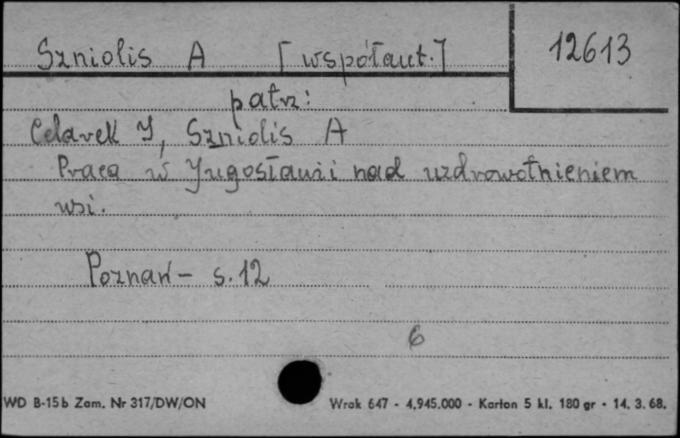 Szniolis A [współaut.] 12613
patrz:
Celarek J, Szniolis A
Praca w Jugosławii nad uzdrowotnieniem
wsi.
Poznań - s. 12
6
WD B-15b Zam. Nr 317/DW/ON Wrak 647 - 4.945.000 - Karton 5 kl. 180 gr - 14. 3. 68.